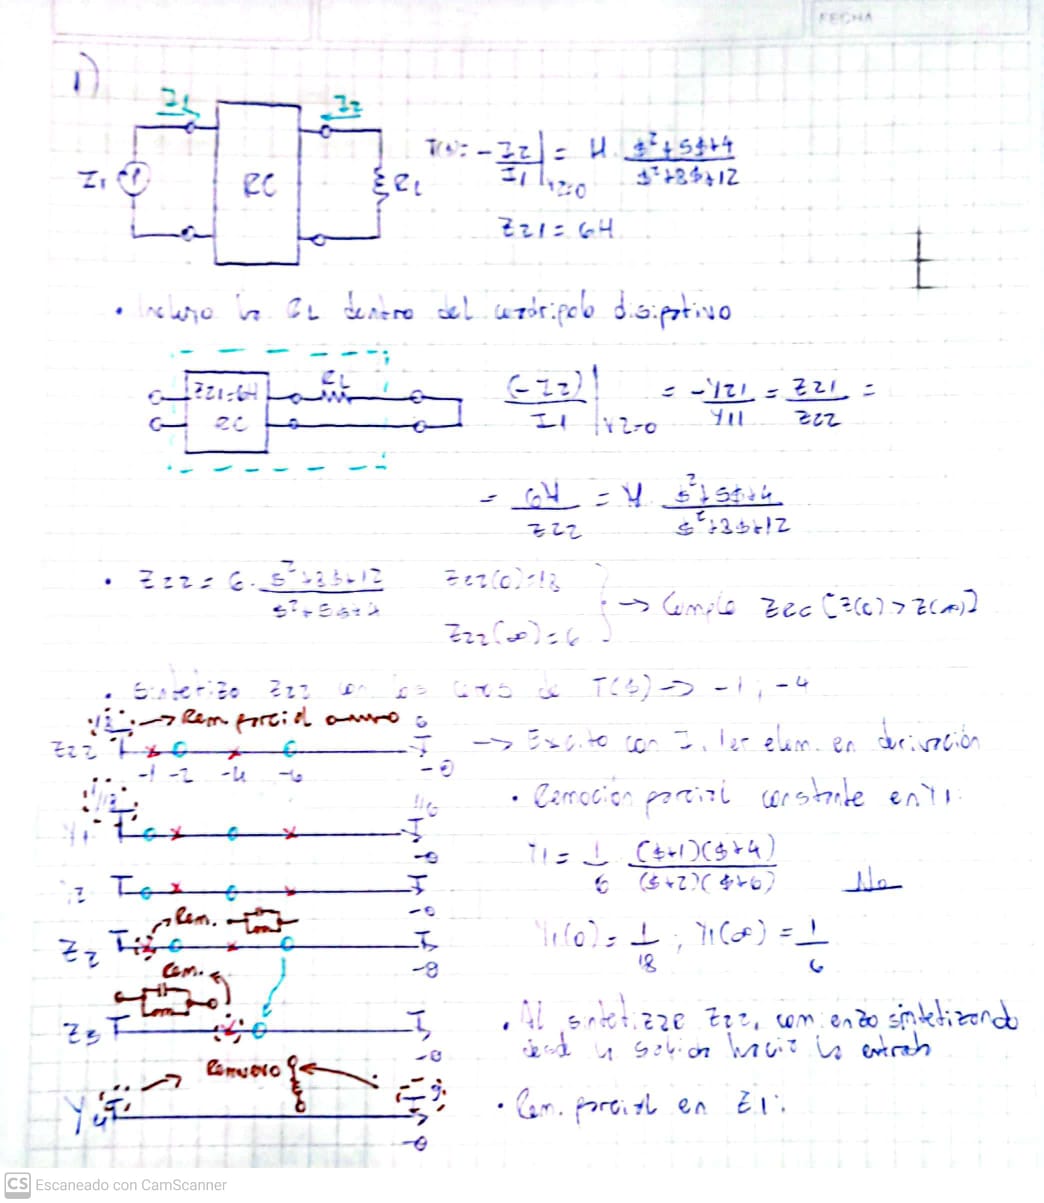 FECHA
1)
I1
I2
I1
RC
RL
T(s)= -I2/I1 |V2=0 = H. $²+5$+4 / $²+8$+12
Z21 = 6H
• Incluyo la RL dentro del cuadripolo disipativo
RL
Z21=6H
RC
(-I2)/I1 |V2=0 = -Y21/Y11 = Z21/Z22 =
= 6H/Z22 = H. $²+5$+4 / $²+8$+12
• Z22 = 6. $²+8$+12 / $²+5$+4
Z22(0)=18
Z22(∞)=6
→ Cumple ZRC [Z(0) > Z(∞)]
• Sintetizo Z22 con los ceros de T($) → -1, -4
→ Rem parcial 6
Z22
-1 -2 -4 -6
→ Excito con I, 1er elem. en derivación
• Remoción parcial constante en Y1:
1/18
1/6
Y1
Y1 = 1/6 ($+1)($+4) / ($+2)($+6) No
Y1(0) = 1/18 ; Y1(∞) = 1/6
Rem.
Z2
Rem.
Z3
• Al sintetizar Z22, comienzo sintetizando
desde la salida hacia la entrada
Remuevo
Y4
• Rem. parcial en Z1:
CS Escaneado con CamScanner